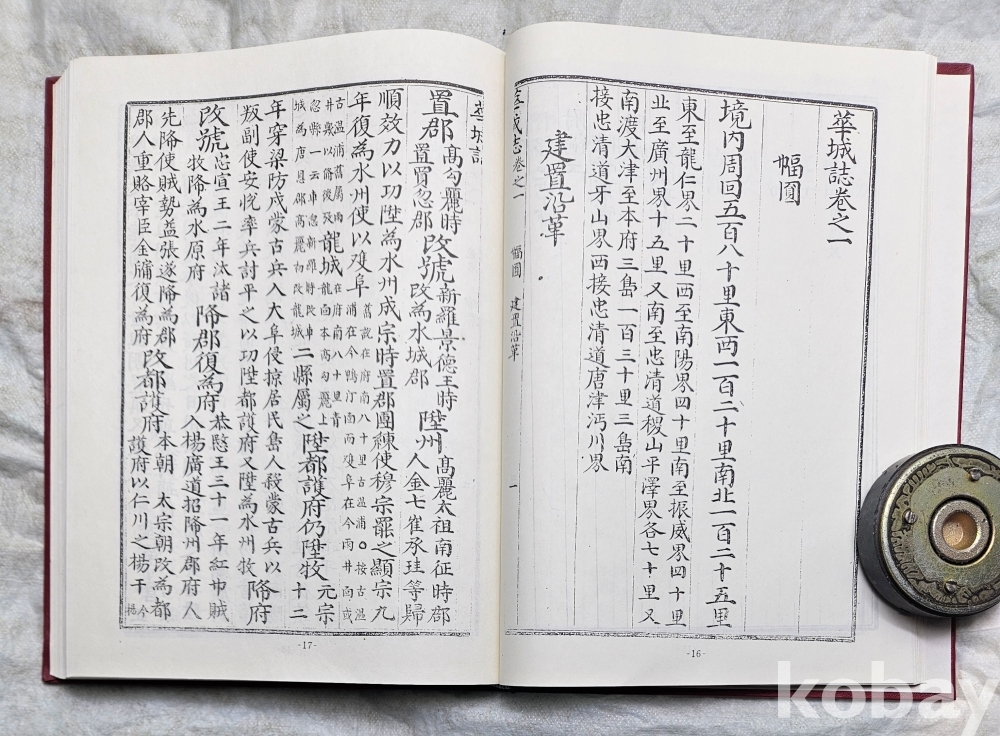 華城誌卷之一
幅圓
境内周回五百八十里東西一百二十里南北一百二十五里
東至龍仁界二十里西至南陽界四十里南至振威界四十里
北至廣州界十五里又南至忠清道稷山平澤界各七十里又
南渡大津至本府三島一百三十里三島南
接忠清道牙山界西接忠清道唐津沔川界
建置沿革
華城志卷之一 幅圓 建置沿革 一
-16-
華城誌
置郡 高勾麗時置買忽郡 改號 新羅景德王時改為水城郡 陞州 高麗太祖南征時郡人金七崔承珪等歸
順效力以功陞為水州成宗時置郡團練使穆宗罷之顯宗九
年復為水州使以雙阜
龍城
二縣屬之 陞都護府仍陞牧 元宗十二
年穿梁防戍蒙古兵入大阜侵掠居民島人殺蒙古兵以
叛副使安悅率兵討平之以功陞都護府又陞為水州牧 降府
改號 忠宣王二年汰諸牧降為水原府 降郡復為府 恭愍王三十一年紅巾賊入楊廣道招降州郡府人
先降使賊勢益張遂降為郡
郡人重賂宰臣金鏞復為府 改都護府 本朝 太宗朝改為都護府以仁川之楊干
-17-
kobay